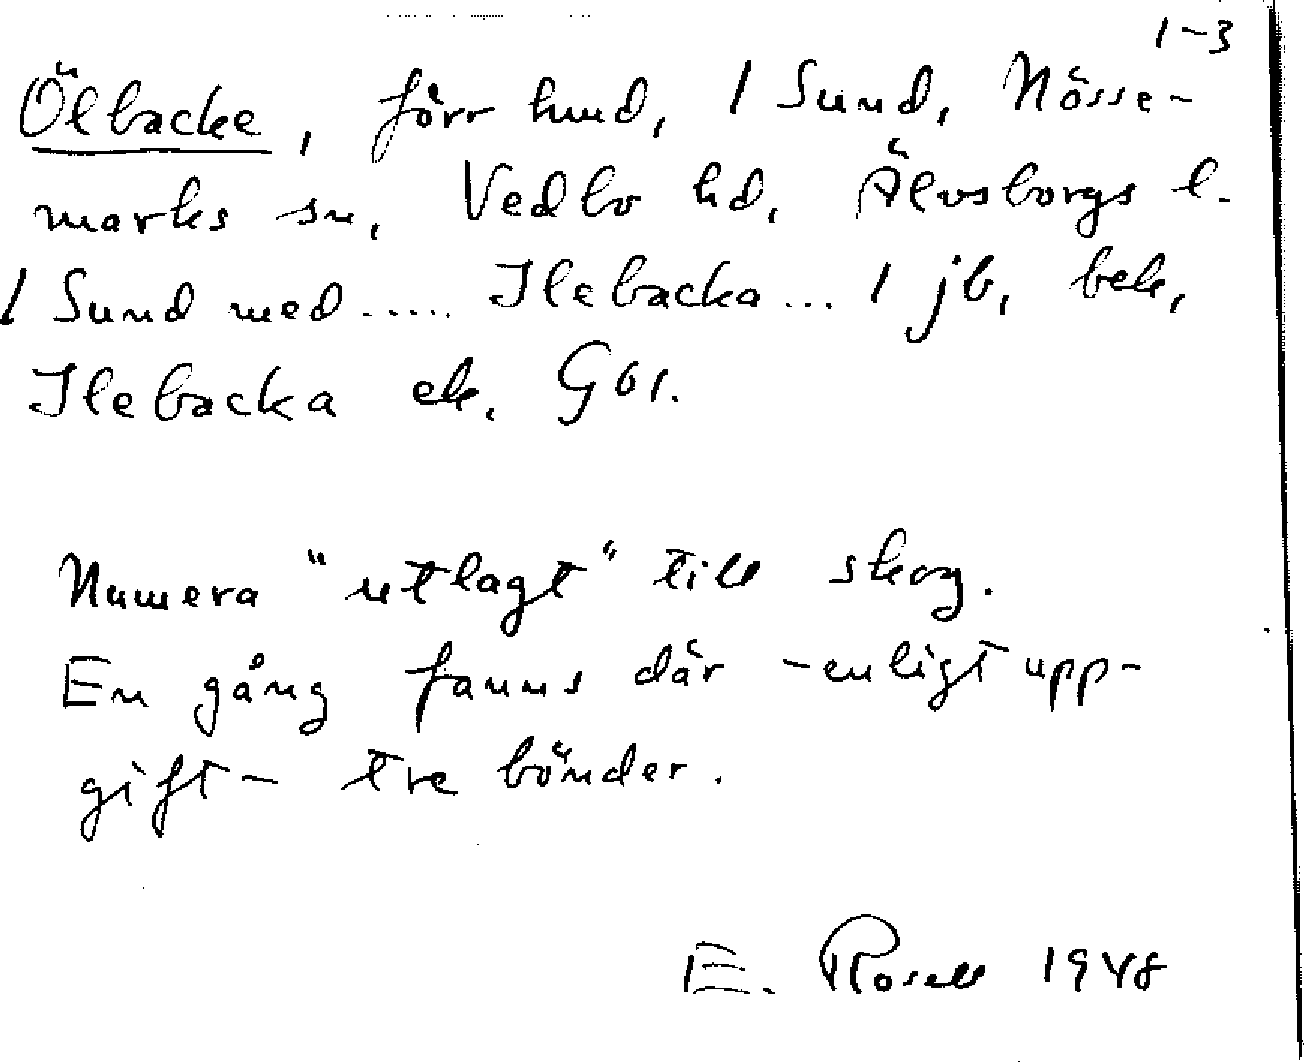 1-3
Ölbacke, förr hmd, / Sund, Nösse-
marks sn, Vedbo hd, Älvsborgs l.
/ Sund med..... Ilebacka... / jb, bek,
Ilebacka ek. G61.
Numera "utlagt" till skog.
En gång fanns där -enligt upp-
gift- tre bönder.
E. Rosell 1948